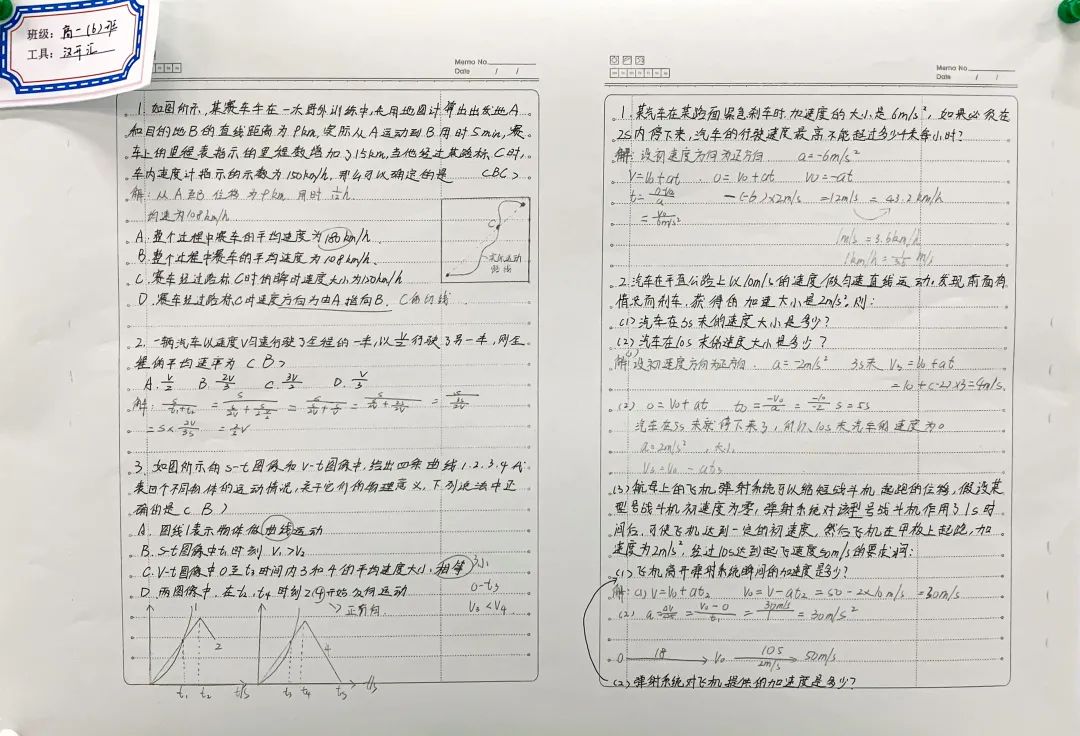 班级：高一(6)班
工具：汉开汇
Memo No.
Date / /
1. 如图所示，某赛车手在一次野外训练中，先用地图计算出出发地A
和目的地B的直线距离为9km，实际从A运动到B用时5min，赛
车上的里程表指示的里程数增加了15km，当他经过某路标C时，
车内速度计指示的示数为150km/h，那么可以确定的是 (BC)
解：从A至B位移为9km 用时 1/12 h
均速为108km/h
A. 整个过程中赛车的平均速度为180km/h
B. 整个过程中赛车的平均速度为108km/h
C. 赛车经过路标C时的瞬时速度大小为150km/h
D. 赛车经过路标C时速度方向为由A指向B. C的切线
C
实际运动
路线
2. 一辆汽车以速度V匀速行驶了全程的一半，以V/2行驶了另一半，则全
程的平均速率为 (B)
A. V/2 B. 2V/3 C. 3V/2 D. V/3
= S × 2V/3S = 2/3 V
3. 如图所示的s-t图像和v-t图像中，给出四条曲线1.2.3.4代
表四个不同物体的运动情况，关于它们的物理意义，下列说法中正
确的是 (B)
A. 图线1表示物体做曲线运动
B. s-t图像中t₁时刻 V₁>V₂
C. V-t图像中0至t₃时间内3和4的平均速度大小相等
0-t₃
D. 两图像中，在t₂、t₄时刻2、4开始反向运动
V₃<V₄
正方向
2 4
t₁ t₂ t/s t₃ t₄ t₅ t/s
Memo No.
Date / /
1. 某汽车在某路面紧急刹车时加速度的大小是6m/s²，如果必须在
2S内停下来，汽车的行驶速度最高不能超过多少千米每小时？
解：设初速度方向为正方向 a=-6m/s²
V=V₀+at . 0=V₀+at V₀=-at
t=(0-V₀)/a -(-6)×2m/s =12m/s = 43.2km/h
= V₀/6m/s²
1m/s = 3.6km/h
1km/h = 1/3.6 m/s
2. 汽车在平直公路上以10m/s的速度做匀速直线运动，发现前面有
情况而刹车，获得的加速大小是2m/s²，则：
(1) 汽车在3s末的速度大小是多少？
(2) 汽车在10s末的速度大小是多少？
解(1)设初速度方向为正方向. a=-2m/s² 3s末 V₃=V₀+at
=10+(-2)×3=4m/s.
(2) 0=V₀+at t₀=-V₀/a = -10/-2 s=5s
汽车在5s末就停下来了，所以，10s末汽车的速度为0
a=2m/s²
V₃=V₀-at₃
(3) 航母上的飞机弹射系统可以缩短战斗机起跑的位移，假设某
型号战斗机初速度为零，弹射系统对该型号战斗机作用了1s时
间后，可使飞机达到一定的初速度，然后飞机在甲板上起跑，加
速度为2m/s²，经过10s达到起飞速度50m/s的要求，问：
(1) 飞机离开弹射系统瞬间的加速度是多少？
解：(1) V=V₀+at₂ V₀=V-at₂ =50-2×10m/s =30m/s
(2) a=ΔV/Δt = (V₀-0)/t₁ = 30m/s/1 = 30m/s²
0 1s V₀ 10s 2m/s 50m/s
(2) 弹射系统对飞机提供的加速度是多少？